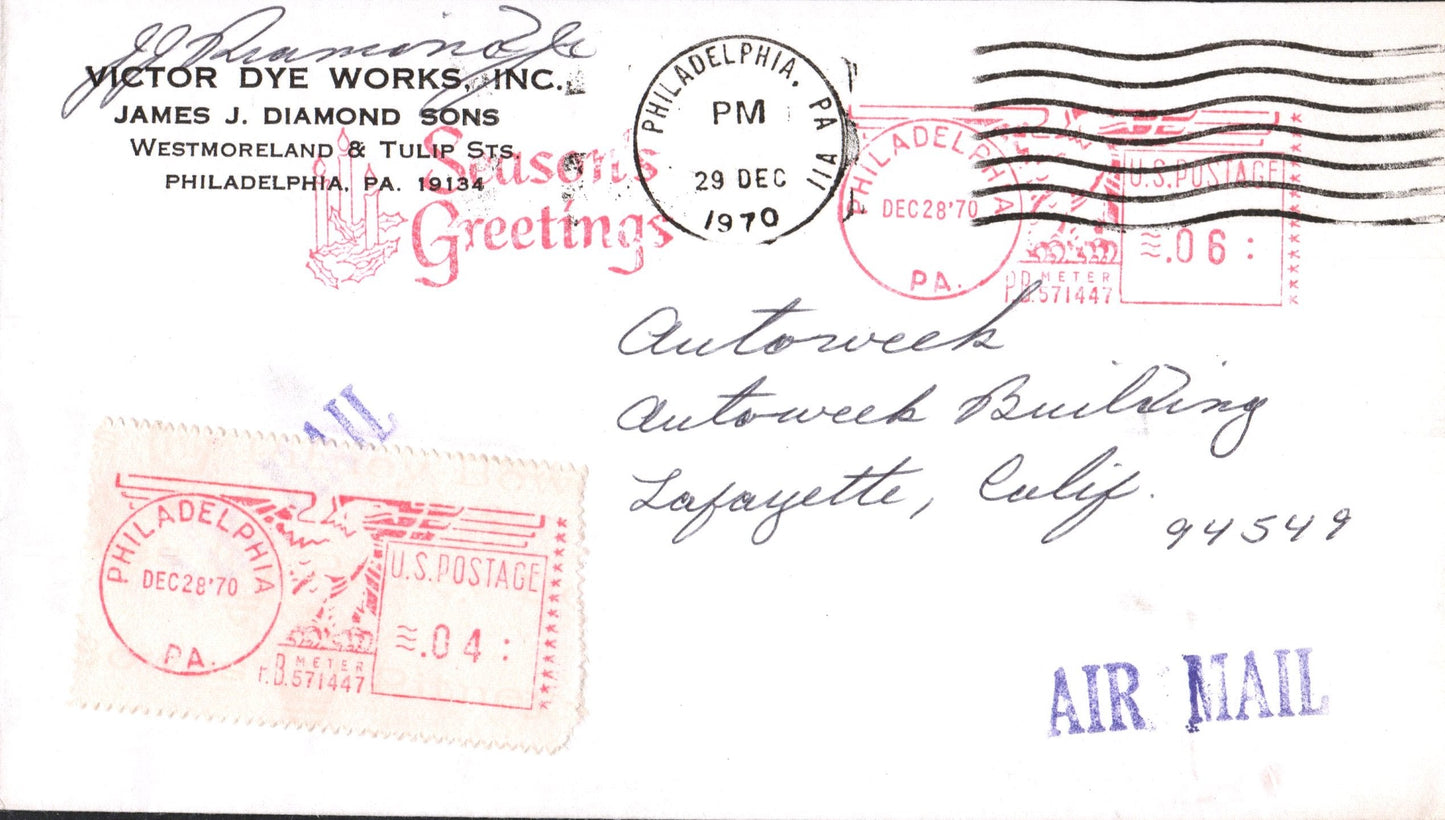 JJ Diamond Jr
VICTOR DYE WORKS, INC.
JAMES J. DIAMOND SONS
WESTMORELAND & TULIP STS.
PHILADELPHIA, PA. 19134
Season's
Greetings
PHILADELPHIA, PA
PM
29 DEC
1970
PHILADELPHIA
DEC28'70
PA.
U.S.POSTAGE
.06
P.B. METER
571447
Autoweek
Autoweek Building
Lafayette, Calif.
94549
AIL
PHILADELPHIA
DEC28'70
PA.
U.S.POSTAGE
.04
P.B. METER
571447
AIR MAIL